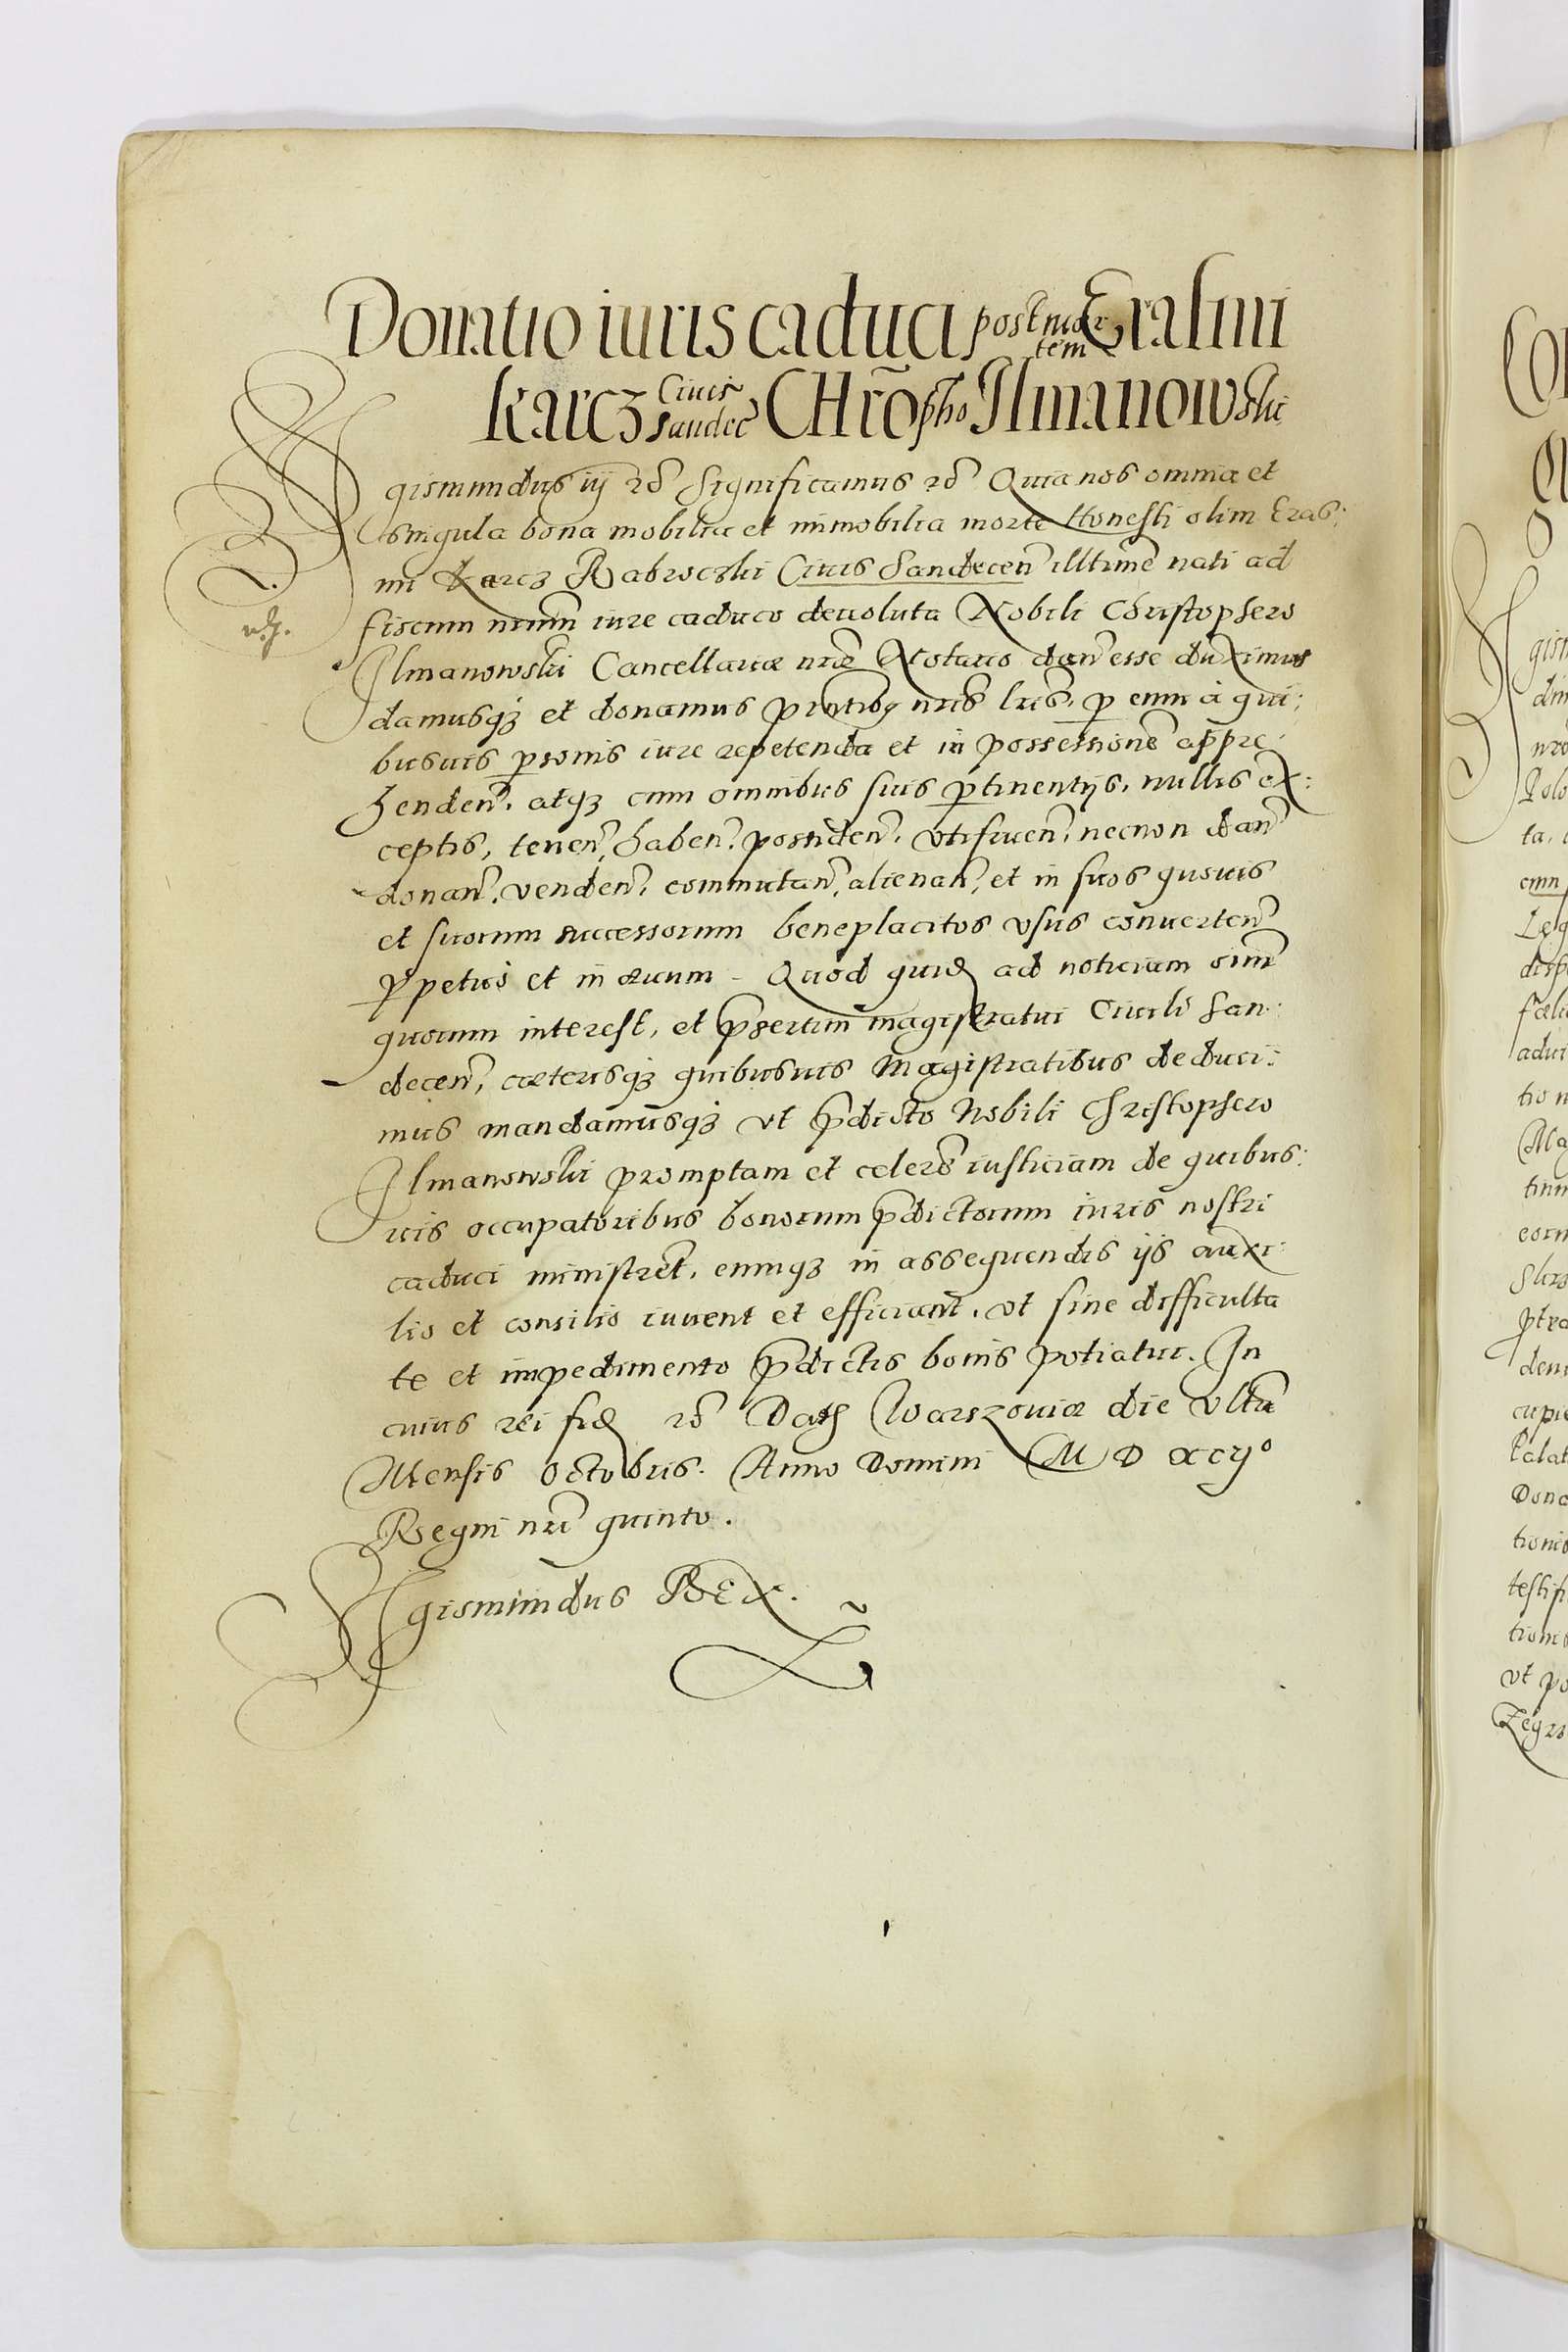 Donatio iuris caduci post mortem Erasmi
Karcz Ciuis Sandec̃ CHrõpho Ilmanowski
Sigismundus iij rc̃ Significamus rc̃ Quia nos omnia et
singula bona mobilia et immobilia morte Honesti olim Eras:
mi Karcz Rabroczki Ciuis Sandecen̄ illtimẽ nati ad
fiscum nrũm iure caduco deuoluta Nobili Christophero
Ilmanowski Cancellariæ nræ Notario dan̄ esse duximus
damusqꝫ et donamus pñtibꝫ nris lris, ꝑ eum à qui:
busuis ꝑsonis iure repetenda et in possessionẽ appre:
henden̄. atqꝫ cum omnibus suis ꝑtinentijs, nullis ex:
ceptis, tenen̄, haben̄. possiden̄. vtifruen̄. necnon dan̄
donan̄. venden̄. commutan̄, alienan̄, et in suos quosuis
et suorum successorum beneplacitos vsus conuerten̄
ꝑpetuò et in æuum. Quod quidẽ ad noticiam oĩm
quorum interest, et p̃sertim magistratui Ciuili San:
decen̄, cæterisqꝫ quibusuis Magistratibus deduci:
mus mandamusqꝫ vt p̃dicto Nobili Christophero
Ilmanowski promptam et celerẽ iusticiam de quibus:
uis occupatoribus bonorum p̃dictorum iuris nostri
caduci ministrẽt, eumqꝫ in assequendis ijs auxi:
lio et consilio iuuent et efficiant. vt sine difficulta
te et impedimento p̃dictis bonis potiatur. In
cuius rei fidẽ rc̃ Dat̃ Warszouiæ die vltĩa
Mensis Octobris. Anno Domini M D XCijº
Regni nrĩ quinto.
Sigismundus REX.